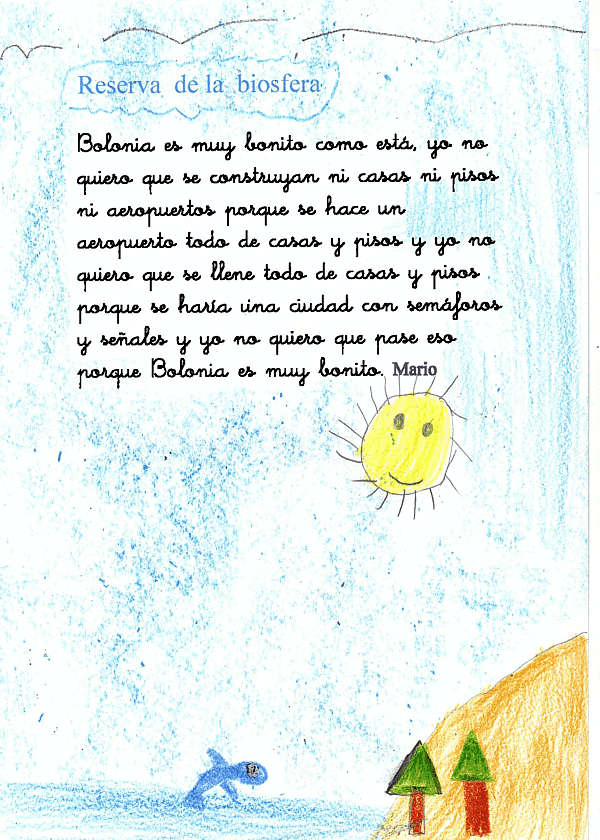 Reserva de la biosfera
Bolonia es muy bonito como está, yo no
quiero que se construyan ni casas ni pisos
ni aeropuertos porque se hace un
aeropuerto todo de casas y pisos y yo no
quiero que se llene todo de casas y pisos
porque se haría una ciudad con semáforos
y señales y yo no quiero que pase eso
porque Bolonia es muy bonito. Mario